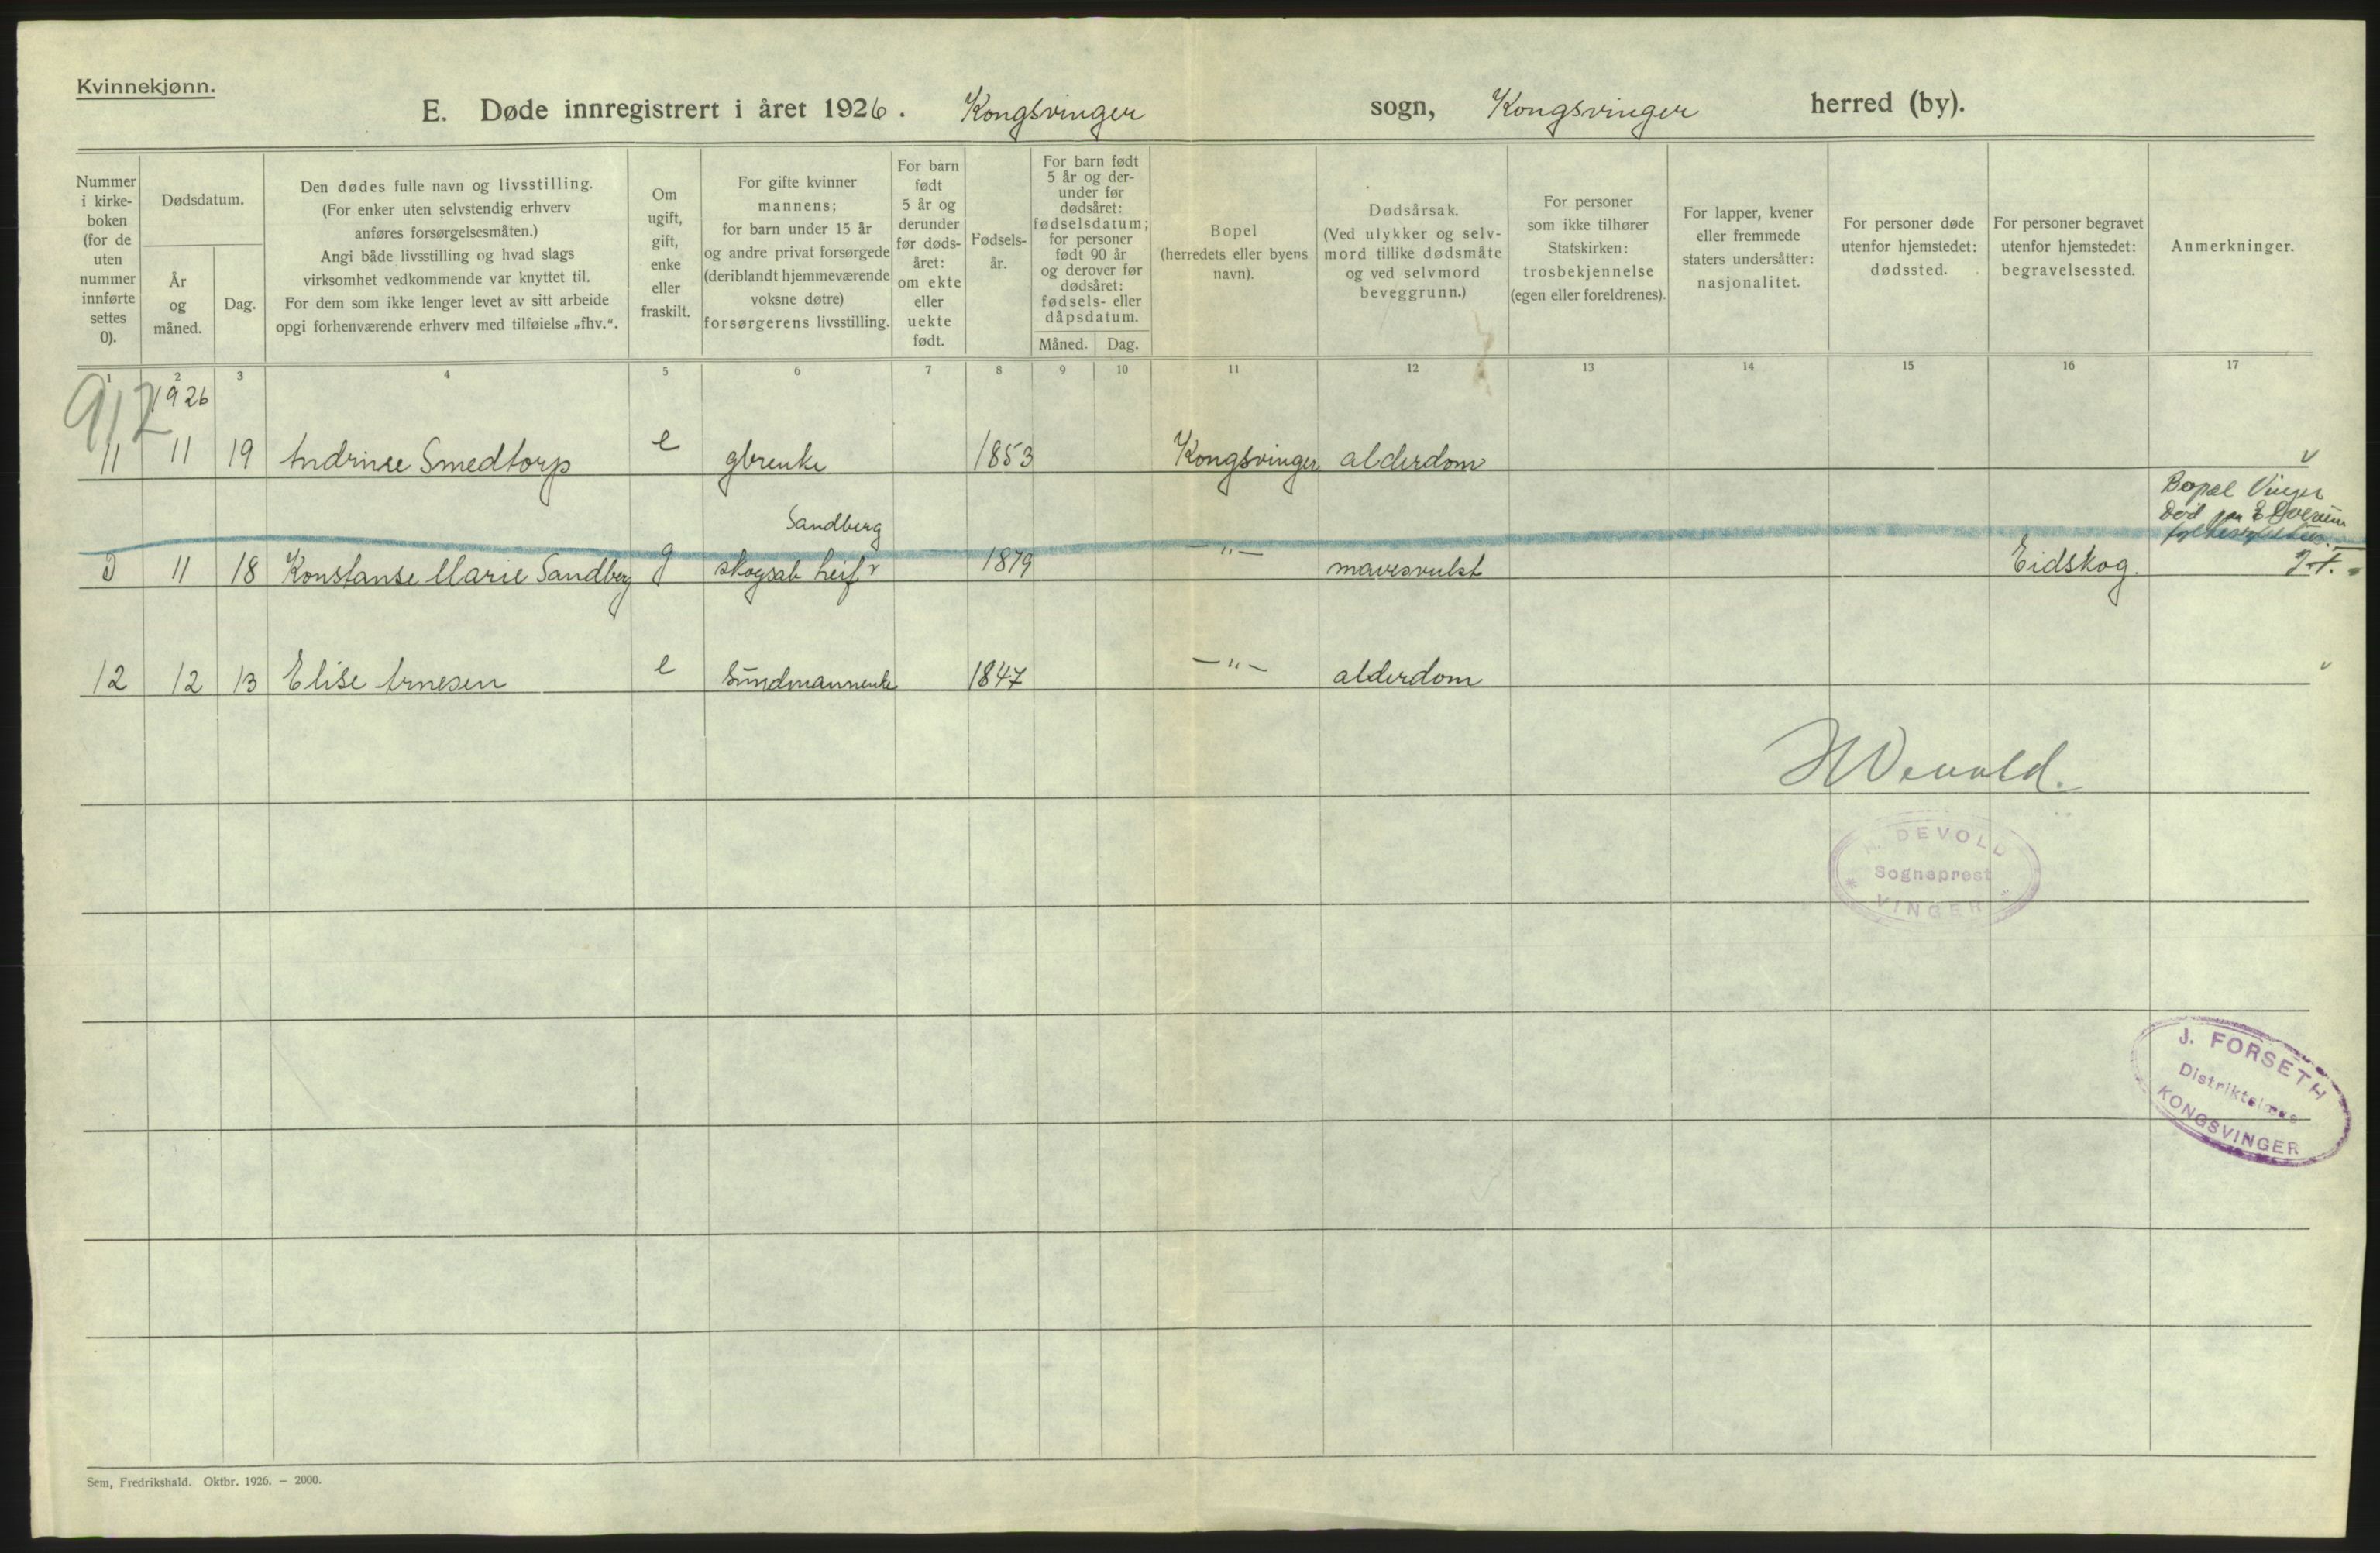 Kvinnekjønn.
E. Døde innregistrert i året 1926. Kongsvinger sogn, Kongsvinger herred (by).
Nummer i kirke-boken (for de uten nummer innførte settes 0).
Dødsdatum.
År og måned.
Dag.
Den dødes fulle navn og livsstilling.
(For enker uten selvstendig erhverv
anføres forsørgelsesmåten.)
Angi både livsstilling og hvad slags
virksomhet vedkommende var knyttet til.
For dem som ikke lenger levet av sitt arbeide
opgi forhenværende erhverv med tilføielse „fhv.“.
Om ugift, gift, enke eller fraskilt.
For gifte kvinner
mannens;
for barn under 15 år
og andre privat forsørgede
(deriblandt hjemmeværende
voksne døtre)
forsørgerens livsstilling.
For barn født 5 år og derunder før døds-året: om ekte eller uekte født.
Fødsels-år.
For barn født
5 år og der-
under før
dødsåret:
fødselsdatum;
for personer
født 90 år
og derover før
dødsåret:
fødsels- eller
dåpsdatum.
Måned. Dag.
Bopel
(herredets eller byens
navn).
Dødsårsak.
(Ved ulykker og selv-
mord tillike dødsmåte
og ved selvmord
beveggrunn.)
For personer
som ikke tilhører
Statskirken:
trosbekjennelse
(egen eller foreldrenes).
For lapper, kvener
eller fremmede
staters undersåtter:
nasjonalitet.
For personer døde
utenfor hjemstedet:
dødssted.
For personer begravet
utenfor hjemstedet:
begravelsessted.
Anmerkninger.
1 2 3 4 5 6 7 8 9 10 11 12 13 14 15 16 17
912
1926
11 11 19 Andrine Smedtorp e gbrenke 1853 Kongsvinger alderdom v
Bopæl Vinger
Død
Sandberg
0 11 18 Konstanse Marie Sandberg g skogsab 1879 —"— mavesvulst Eidskog. J.F.
12 12 13 Elise Arnesen e Sundmannenke 1847 —"— alderdom v
HDevold.
H. DEVOLD
Sogneprest
VINGER
J. FORSETH
Distriktslæge
KONGSVINGER
Sem, Fredrikshald. Oktbr. 1926. – 2000.